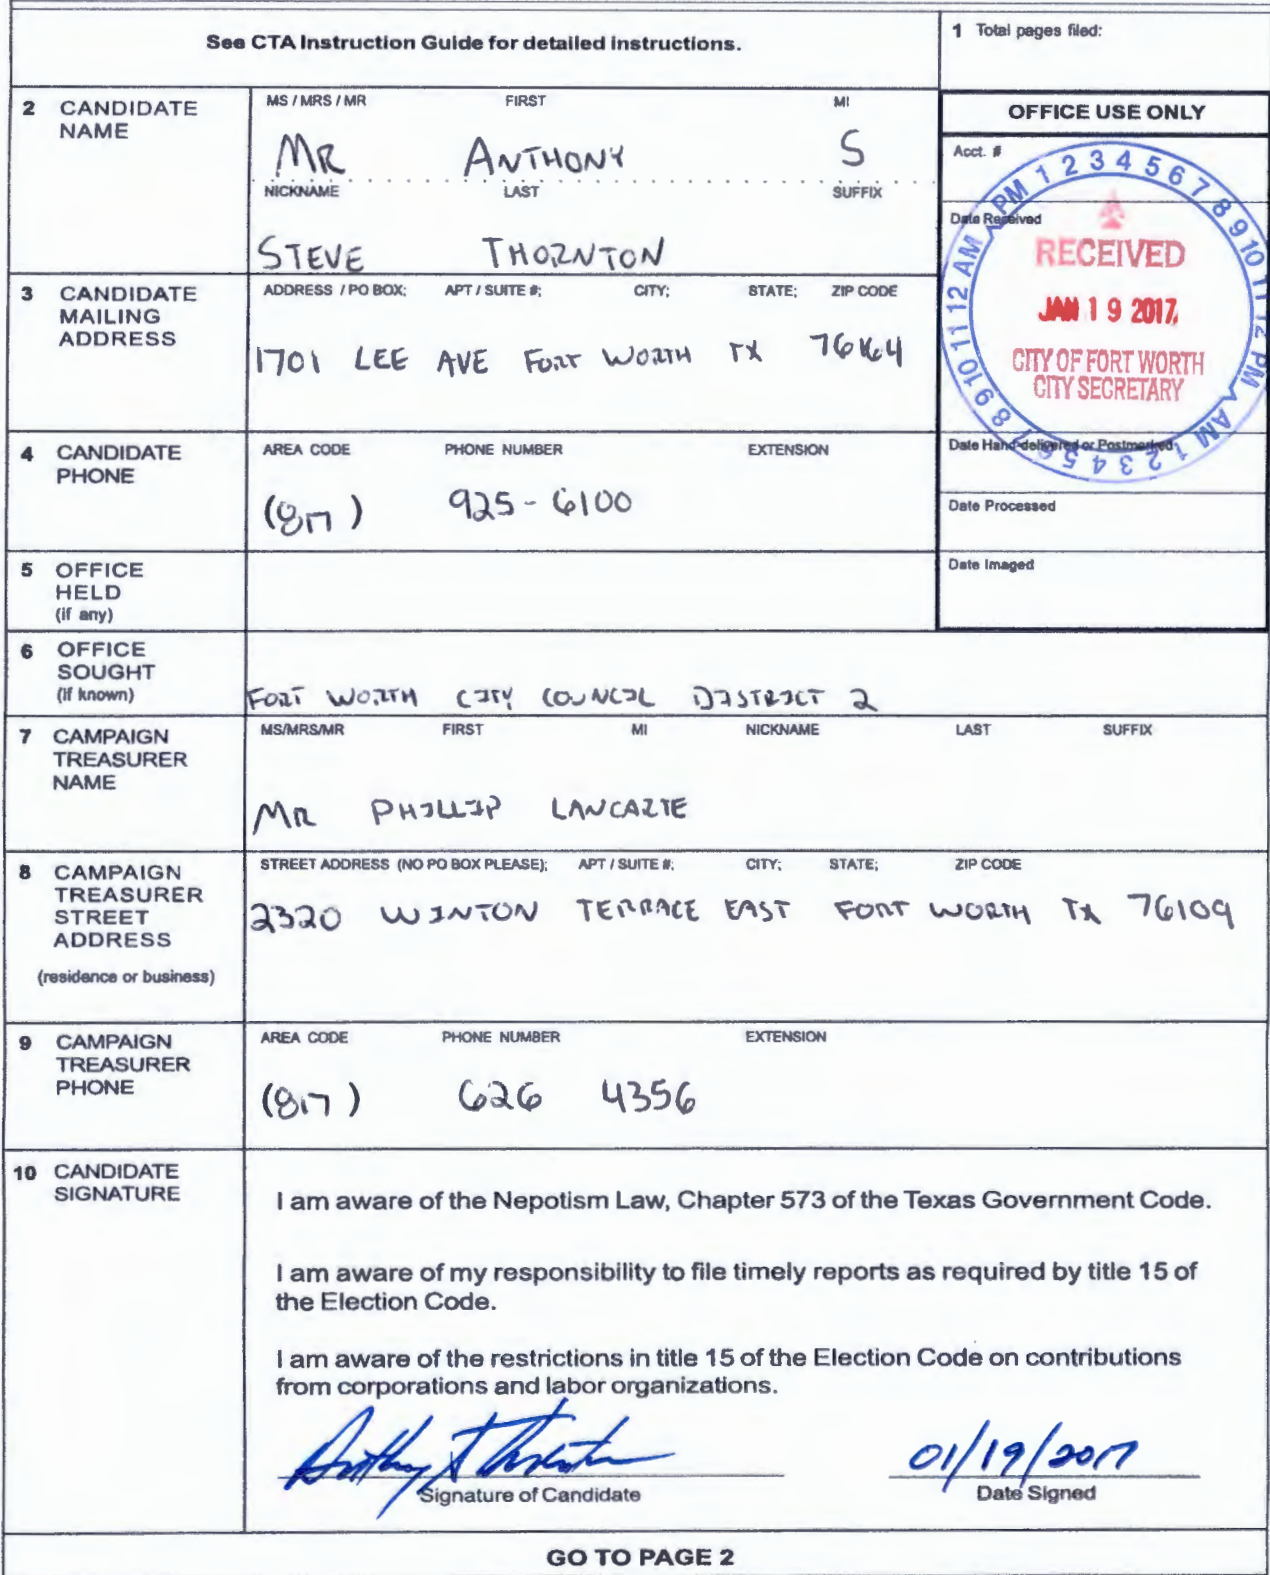 See CTA Instruction Guide for detailed instructions.
1 Total pages filed:
2 CANDIDATE NAME
MS / MRS / MR FIRST MI
MR ANTHONY S
NICKNAME LAST SUFFIX
STEVE THORNTON
OFFICE USE ONLY
Acct. #
Date Received
RECEIVED
JAN 19 2017
CITY OF FORT WORTH
CITY SECRETARY
AM PM 1 2 3 4 5 6 7 8 9 10 11 12 PM AM 1 2 3 4 5 6 7 8 9 10 11 12
Date Hand-delivered or Postmarked
Date Processed
Date Imaged
3 CANDIDATE MAILING ADDRESS
ADDRESS / PO BOX; APT / SUITE #; CITY; STATE; ZIP CODE
1701 LEE AVE FORT WORTH TX 76164
4 CANDIDATE PHONE
AREA CODE PHONE NUMBER EXTENSION
(817) 925-6100
5 OFFICE HELD
(if any)
6 OFFICE SOUGHT
(if known)
FORT WORTH CITY COUNCIL DISTRICT 2
7 CAMPAIGN TREASURER NAME
MS/MRS/MR FIRST MI NICKNAME LAST SUFFIX
MR PHILLIP LANCARTE
8 CAMPAIGN TREASURER STREET ADDRESS
(residence or business)
STREET ADDRESS (NO PO BOX PLEASE); APT / SUITE #; CITY; STATE; ZIP CODE
2320 WINTON TERRACE EAST FORT WORTH TX 76109
9 CAMPAIGN TREASURER PHONE
AREA CODE PHONE NUMBER EXTENSION
(817) 626 4356
10 CANDIDATE SIGNATURE
I am aware of the Nepotism Law, Chapter 573 of the Texas Government Code.
I am aware of my responsibility to file timely reports as required by title 15 of
the Election Code.
I am aware of the restrictions in title 15 of the Election Code on contributions
from corporations and labor organizations.
Anthony S Thornton 01/19/2017
Signature of Candidate Date Signed
GO TO PAGE 2